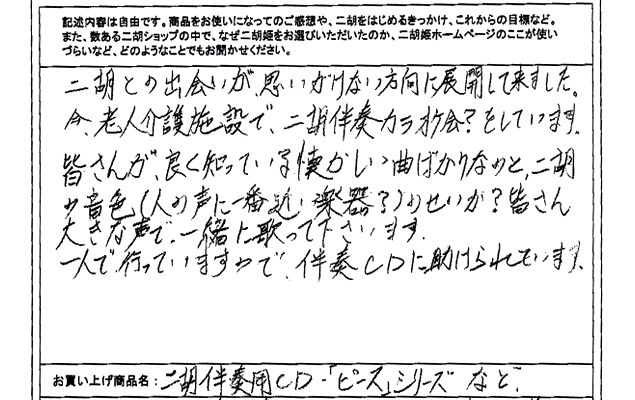 記述内容は自由です。商品をお使いになってのご感想や、二胡をはじめるきっかけ、これからの目標など。
また、数ある二胡ショップの中で、なぜ二胡姫をお選びいただいたのか、二胡姫ホームページのここが使い
づらいなど、どのようなことでもお聞かせください。
二胡との出会いが、思いがけない方向に展開して来ました。
今、老人介護施設で、二胡伴奏カラオケ会?をしています。
皆さんが、良く知っている懐かしい曲ばかりなのと、二胡
の音色(人の声に一番近い楽器?)のせいか?皆さん
大きな声で、一緒に歌って下さいます。
一人で行っていますので、伴奏CDに助けられています。
お買い上げ商品名:二胡伴奏用CD-「ピース」シリーズ など.